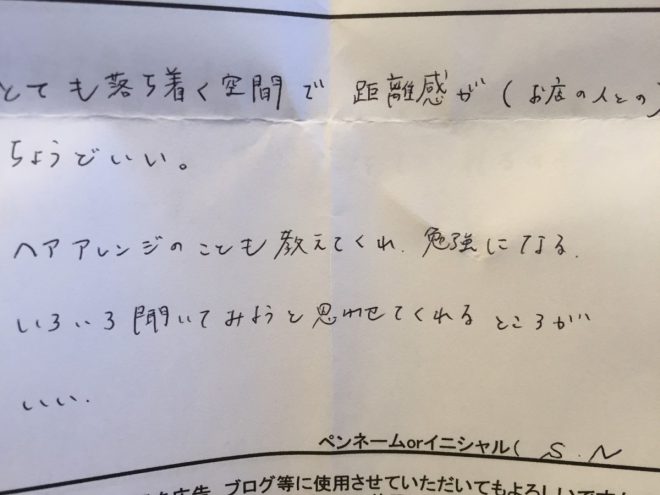 とても落ち着く空間で 距離感が(お店の人との)
ちょうどいい。
ヘアアレンジのことも教えてくれ、勉強になる.
いろいろ聞いてみようと思わせてくれるところが
いい.
ペンネームorイニシャル( S.N
広告、ブログ等に使用させていただいてもよろしいですか